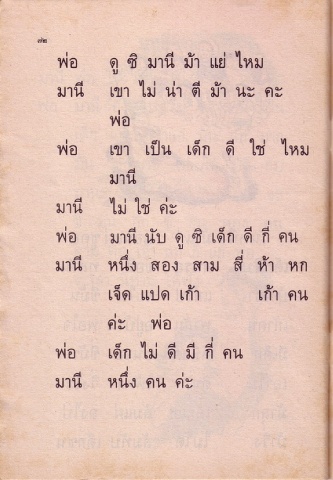 ๗๒
พ่อ ดู ซิ มานี ม้า แย่ ไหม
มานี เขา ไม่ น่า ตี ม้า นะ คะ
พ่อ
พ่อ เขา เป็น เด็ก ดี ใช่ ไหม
มานี
มานี ไม่ ใช่ ค่ะ
พ่อ มานี นับ ดู ซิ เด็ก ดี กี่ คน
มานี หนึ่ง สอง สาม สี่ ห้า หก
เจ็ด แปด เก้า เก้า คน
ค่ะ พ่อ
พ่อ เด็ก ไม่ ดี มี กี่ คน
มานี หนึ่ง คน ค่ะ